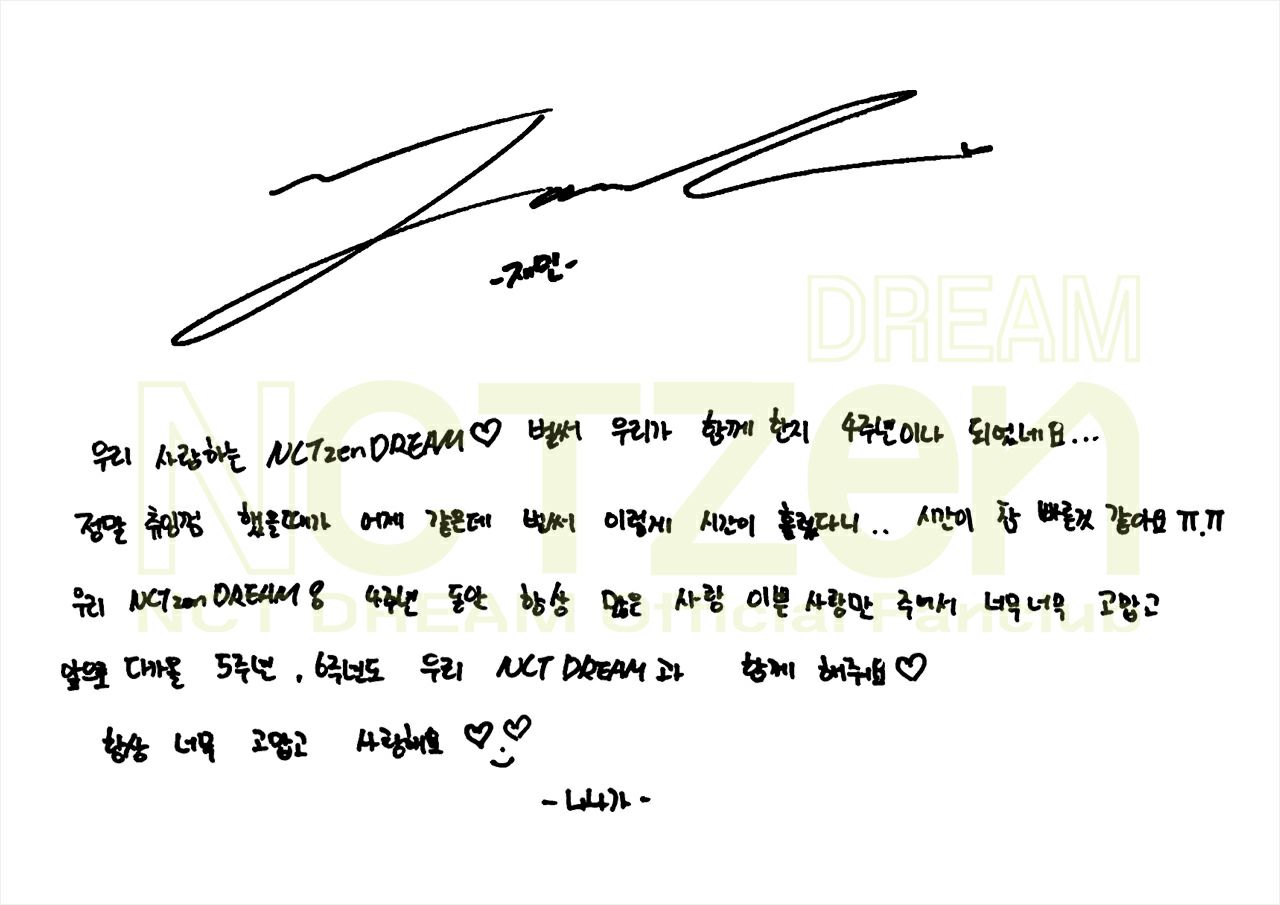 -재민-
DREAM
NCTzen
NCT DREAM Official Fanclub
우리 사랑하는 NCTzenDREAM♡ 벌써 우리가 함께 한지 4주년이나 되었네요...
정말 쥬인껌 했을때가 어제 같은데 벌써 이렇게 시간이 흘렀다니.. 시간이 참 빠른것 같아요 ㅠ.ㅠ
우리 NCTzen DREAM은 4주년 동안 항상 많은 사랑 이쁜 사랑만 주어서 너무너무 고맙고
앞으로 다가올 5주년, 6주년도 우리 NCT DREAM과 함께 해주세요♡
항상 너무 고맙고 사랑해요 ♡.♡
- 나나가 -